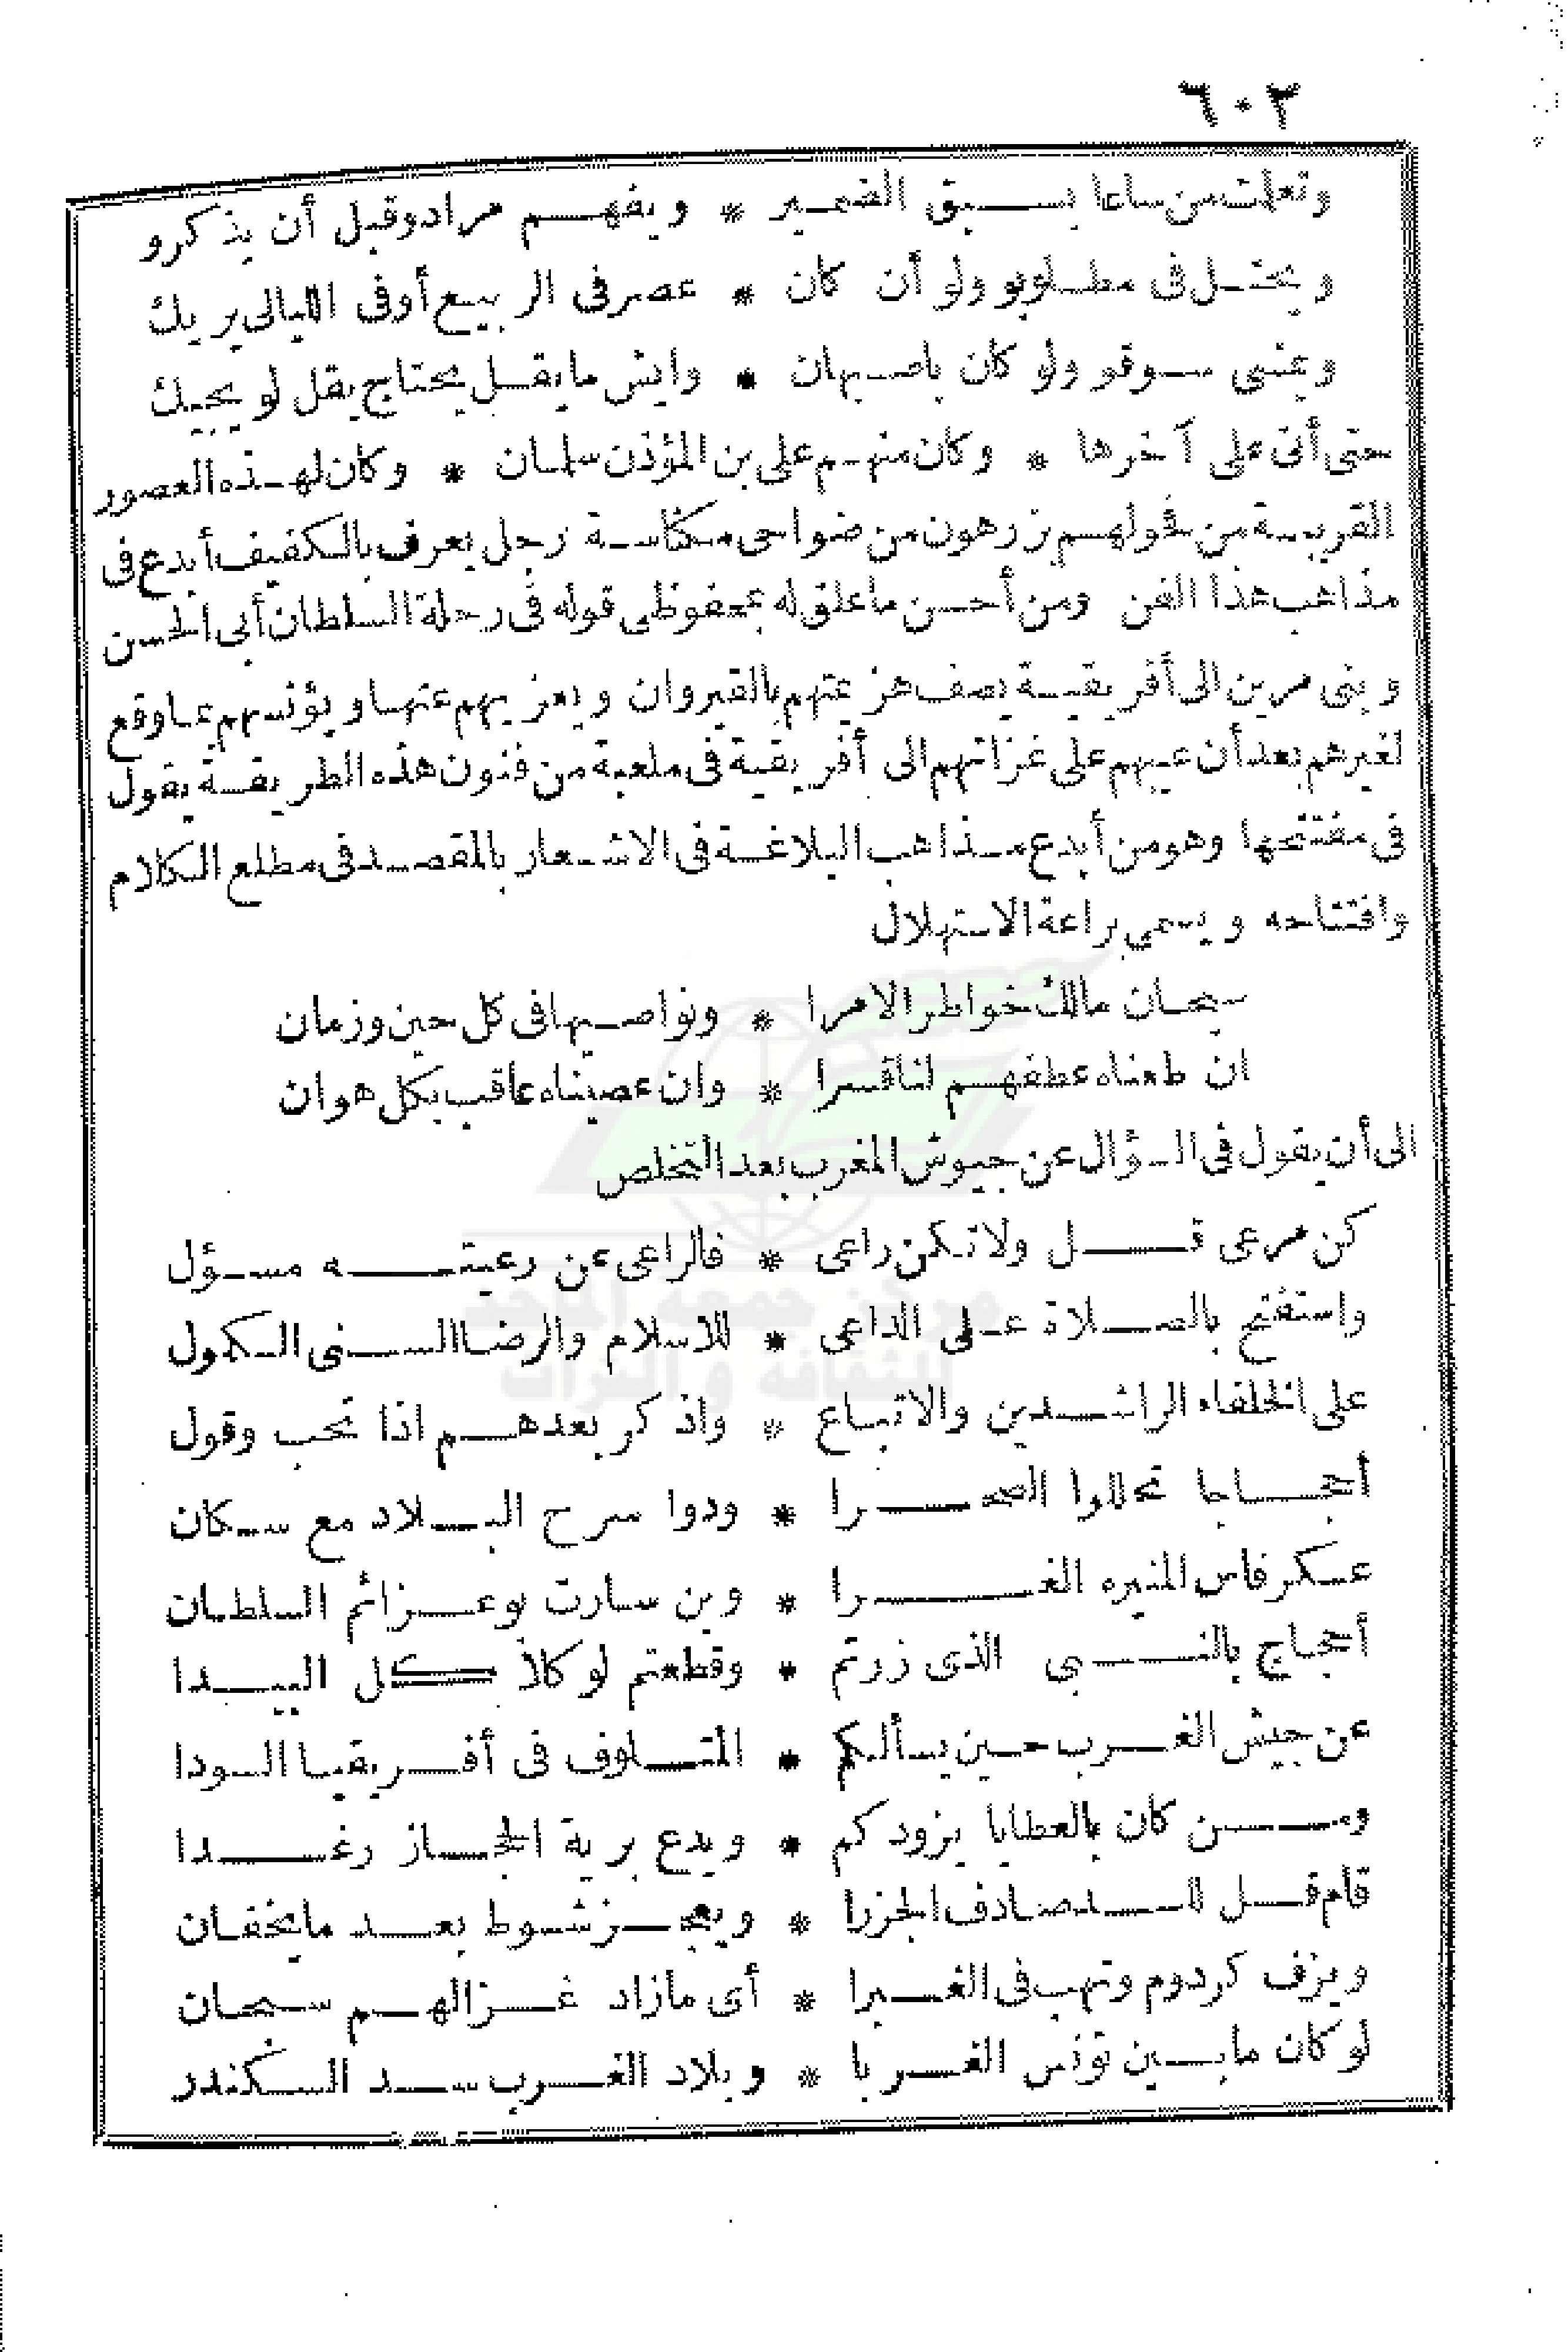 ٦٠٣
وتعلمت من ساعا يسبق الضمير * ويفهم مرادو قبل أن يذكرو
ويحتل فى مطلوبو ولو أن كان * عصر فى الربيع أو فى الليالى يريك
وعشى سوقو ولو كان باصبهان * وايش ما يقل يحتاج يقل لو يجيك
حتى أتى على آخرها * وكان منهم على بن المؤذن سلمان * وكان لهذه العصور
القريبة من فحولهم بزرهون من ضواحى مكناسة رجل يعرف بالكفيف أبدع فى
مذاهب هذا الفن ومن أحسن ما علق له بمحفوظى قوله فى رحلة السلطان أبى الحسن
وبنى مرين الى أفريقية يصف هزيمتهم بالقيروان ويعزيهم عنها ويؤنسهم بما وقع
لغيرهم بعد أن عيبهم على غزاتهم الى أفريقية فى ملعبة من فنون هذه الطريقة يقول
فى مفتتحها وهو من أبدع مذاهب البلاغة فى الاشعار بالمقصد فى مطلع الكلام
وافتتاحه ويسمى براعة الاستهلال
سبحان مالك خواطر الامرا * ونواصيها فى كل حين وزمان
ان طعناه عطفهم لنا قسرا * وان عصيناه عاقب بكل هوان
الى أن يقول فى السؤال عن جيوش المغرب بعد التخلص
كن مرعى قل ولا تكن راعى * فالراعى عن رعيته مسؤل
واستفتح بالصلاة على الداعى * للاسلام والرضا السنى المكمول
على الخلفاء الراشدين والاتباع * واذكر بعدهم اذا تحب وقول
أحجاجا تخللوا الصحرا * ودوا سرح البلاد مع سكان
عسكر فاس المنيره الغرا * وين سارت بو عزائم السلطان
أحجاج بالنبى الذى زرتم * وقطعتم لو كلا كل البيدا
عن جيش الغرب حين يسألكم * المتلوف فى أفريقيا السودا
ومن كان بالعطايا يزودكم * ويدع برية الحجاز رغدا
قام قل للسد صادف الجزرا * ويعجز شوط بعد ما يخفان
ويزف كردوم وتهب فى الغبرا * أى ما زاد غزالهم سبحان
لو كان ما بين تونس الغربا * وبلاد الغرب سد السكندر
مركز جمعة الماجد
للثقافة و التراث